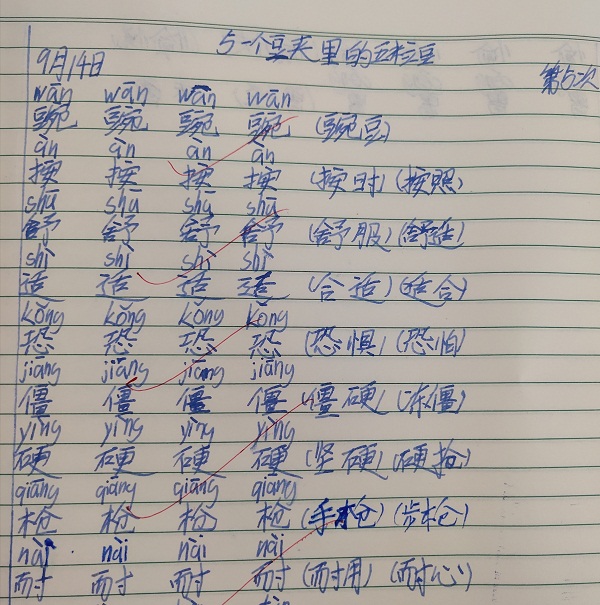 5一个豆荚里的五粒豆
9月14日
第5次
wān wān wān wān
豌 豌 豌 豌 (豌豆)
àn àn àn àn
按 按 按 按 (按时)(按照)
shū shū shū shū
舒 舒 舒 舒 (舒服)(舒适)
shì shì shì shì
适 适 适 适 (合适)(适合)
kǒng kǒng kǒng kǒng
恐 恐 恐 恐 (恐惧)(恐怕)
jiāng jiāng jiāng jiāng
僵 僵 僵 僵 (僵硬)(冻僵)
yìng yìng yìng yìng
硬 硬 硬 硬 (坚硬)(硬拉)
qiāng qiāng qiāng qiang
枪 枪 枪 枪 (手枪)(步枪)
nài nài nài nài
耐 耐 耐 耐 (耐用)(耐心)